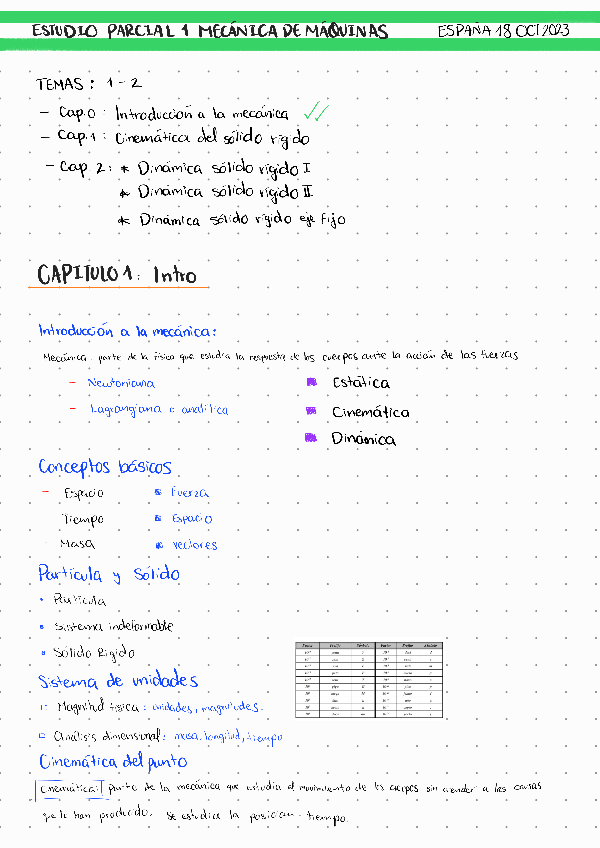 ESTUDIO PARCIAL 1 MECÁNICA DE MÁQUINAS ESPAÑA 18 OCT 2023
TEMAS: 1-2
- Cap.0: Introducción a la mecánica
- Cap.1: Cinemática del sólido rígido
- Cap 2: * Dinámica sólido rígido I
* Dinámica sólido rígido II
* Dinámica sólido rígido eje fijo
CAPITULO 1. Intro
Introducción a la mecánica:
Mecánica: parte de la física que estudia la respuesta de los cuerpos ante la acción de las fuerzas
- Newtoniana Estática
- Lagrangiana o analítica Cinemática
Dinámica
Conceptos básicos
- Espacio Fuerza
Tiempo Espacio
- Masa Vectores
Partícula y Sólido
• Partícula
• Sistema indeformable
• Sólido Rígido
Sistema de unidades
Magnitud física: unidades, magnitudes.
Análisis dimensional: masa, longitud, tiempo
Cinemática del punto
Cinemática: Parte de la mecánica que estudia el movimiento de los cuerpos sin atender a las causas
que lo han producido. Se estudia la posición - tiempo.